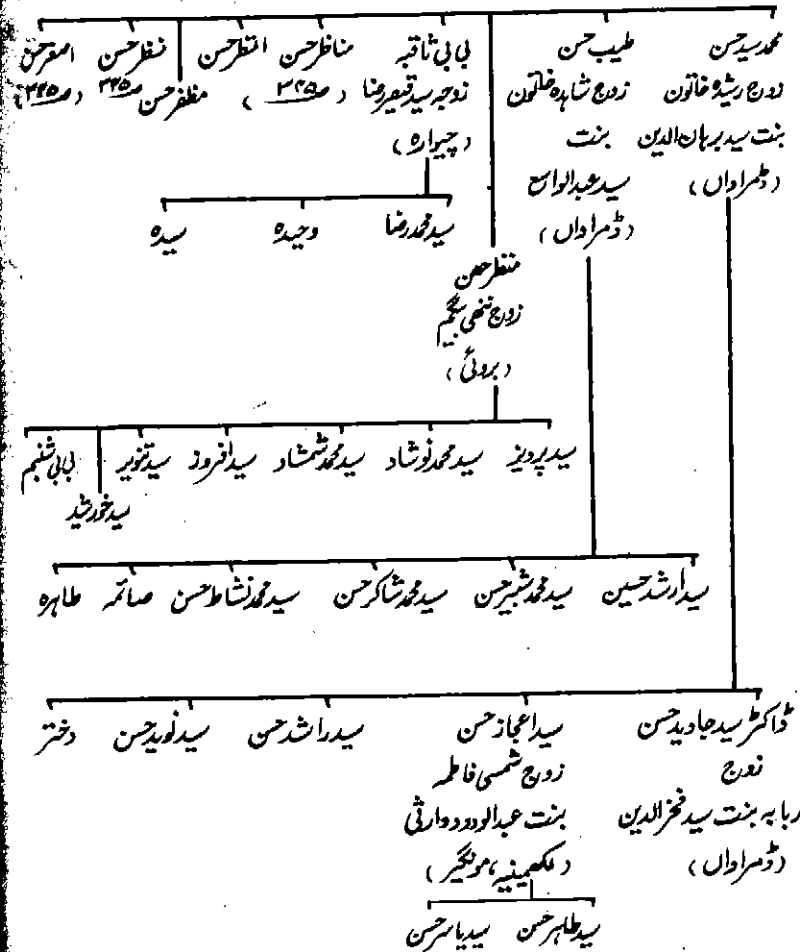 محمد سید حسن
زوج رشیدہ خاتون
بنت سید برہان الدین
(ڈمراواں)
طیب حسن
زوج شاہدہ خاتون
بنت
سید عبدالواسع
(ڈمراواں)
بی بی ثاقبہ
زوجہ سید قیصر رضا
(جیوارہ)
مناظر حسن
(ص۳۲۵)
انتظر حسن
مظفر حسن
نظر حسن
ص۳۲۵
اصغر حسن
(ص۳۲۵)
سید محمد رضا وحیدہ سیدہ
منظر حسن
زوج ننھی بیگم
(بروئی)
سید پرویز سید محمد نوشاد سید محمد شمشاد سید افروز سید تنویر بی بی شبنم
سید خورشید
سید ارشد حسین سید محمد شبیر حسن سید محمد شاکر حسن سید محمد نشاط حسن صائمہ طاہرہ
ڈاکٹر سید جاوید حسن
زوج
ربابہ بنت سید فخر الدین
(ڈمراواں)
سید اعجاز حسن
زوج شمسی فاطمہ
بنت عبدالودود وارثی
(لکھمینیہ، مونگیر)
سید راشد حسن سید نوید حسن دختر
سید طاہر حسن سید یاسر حسن